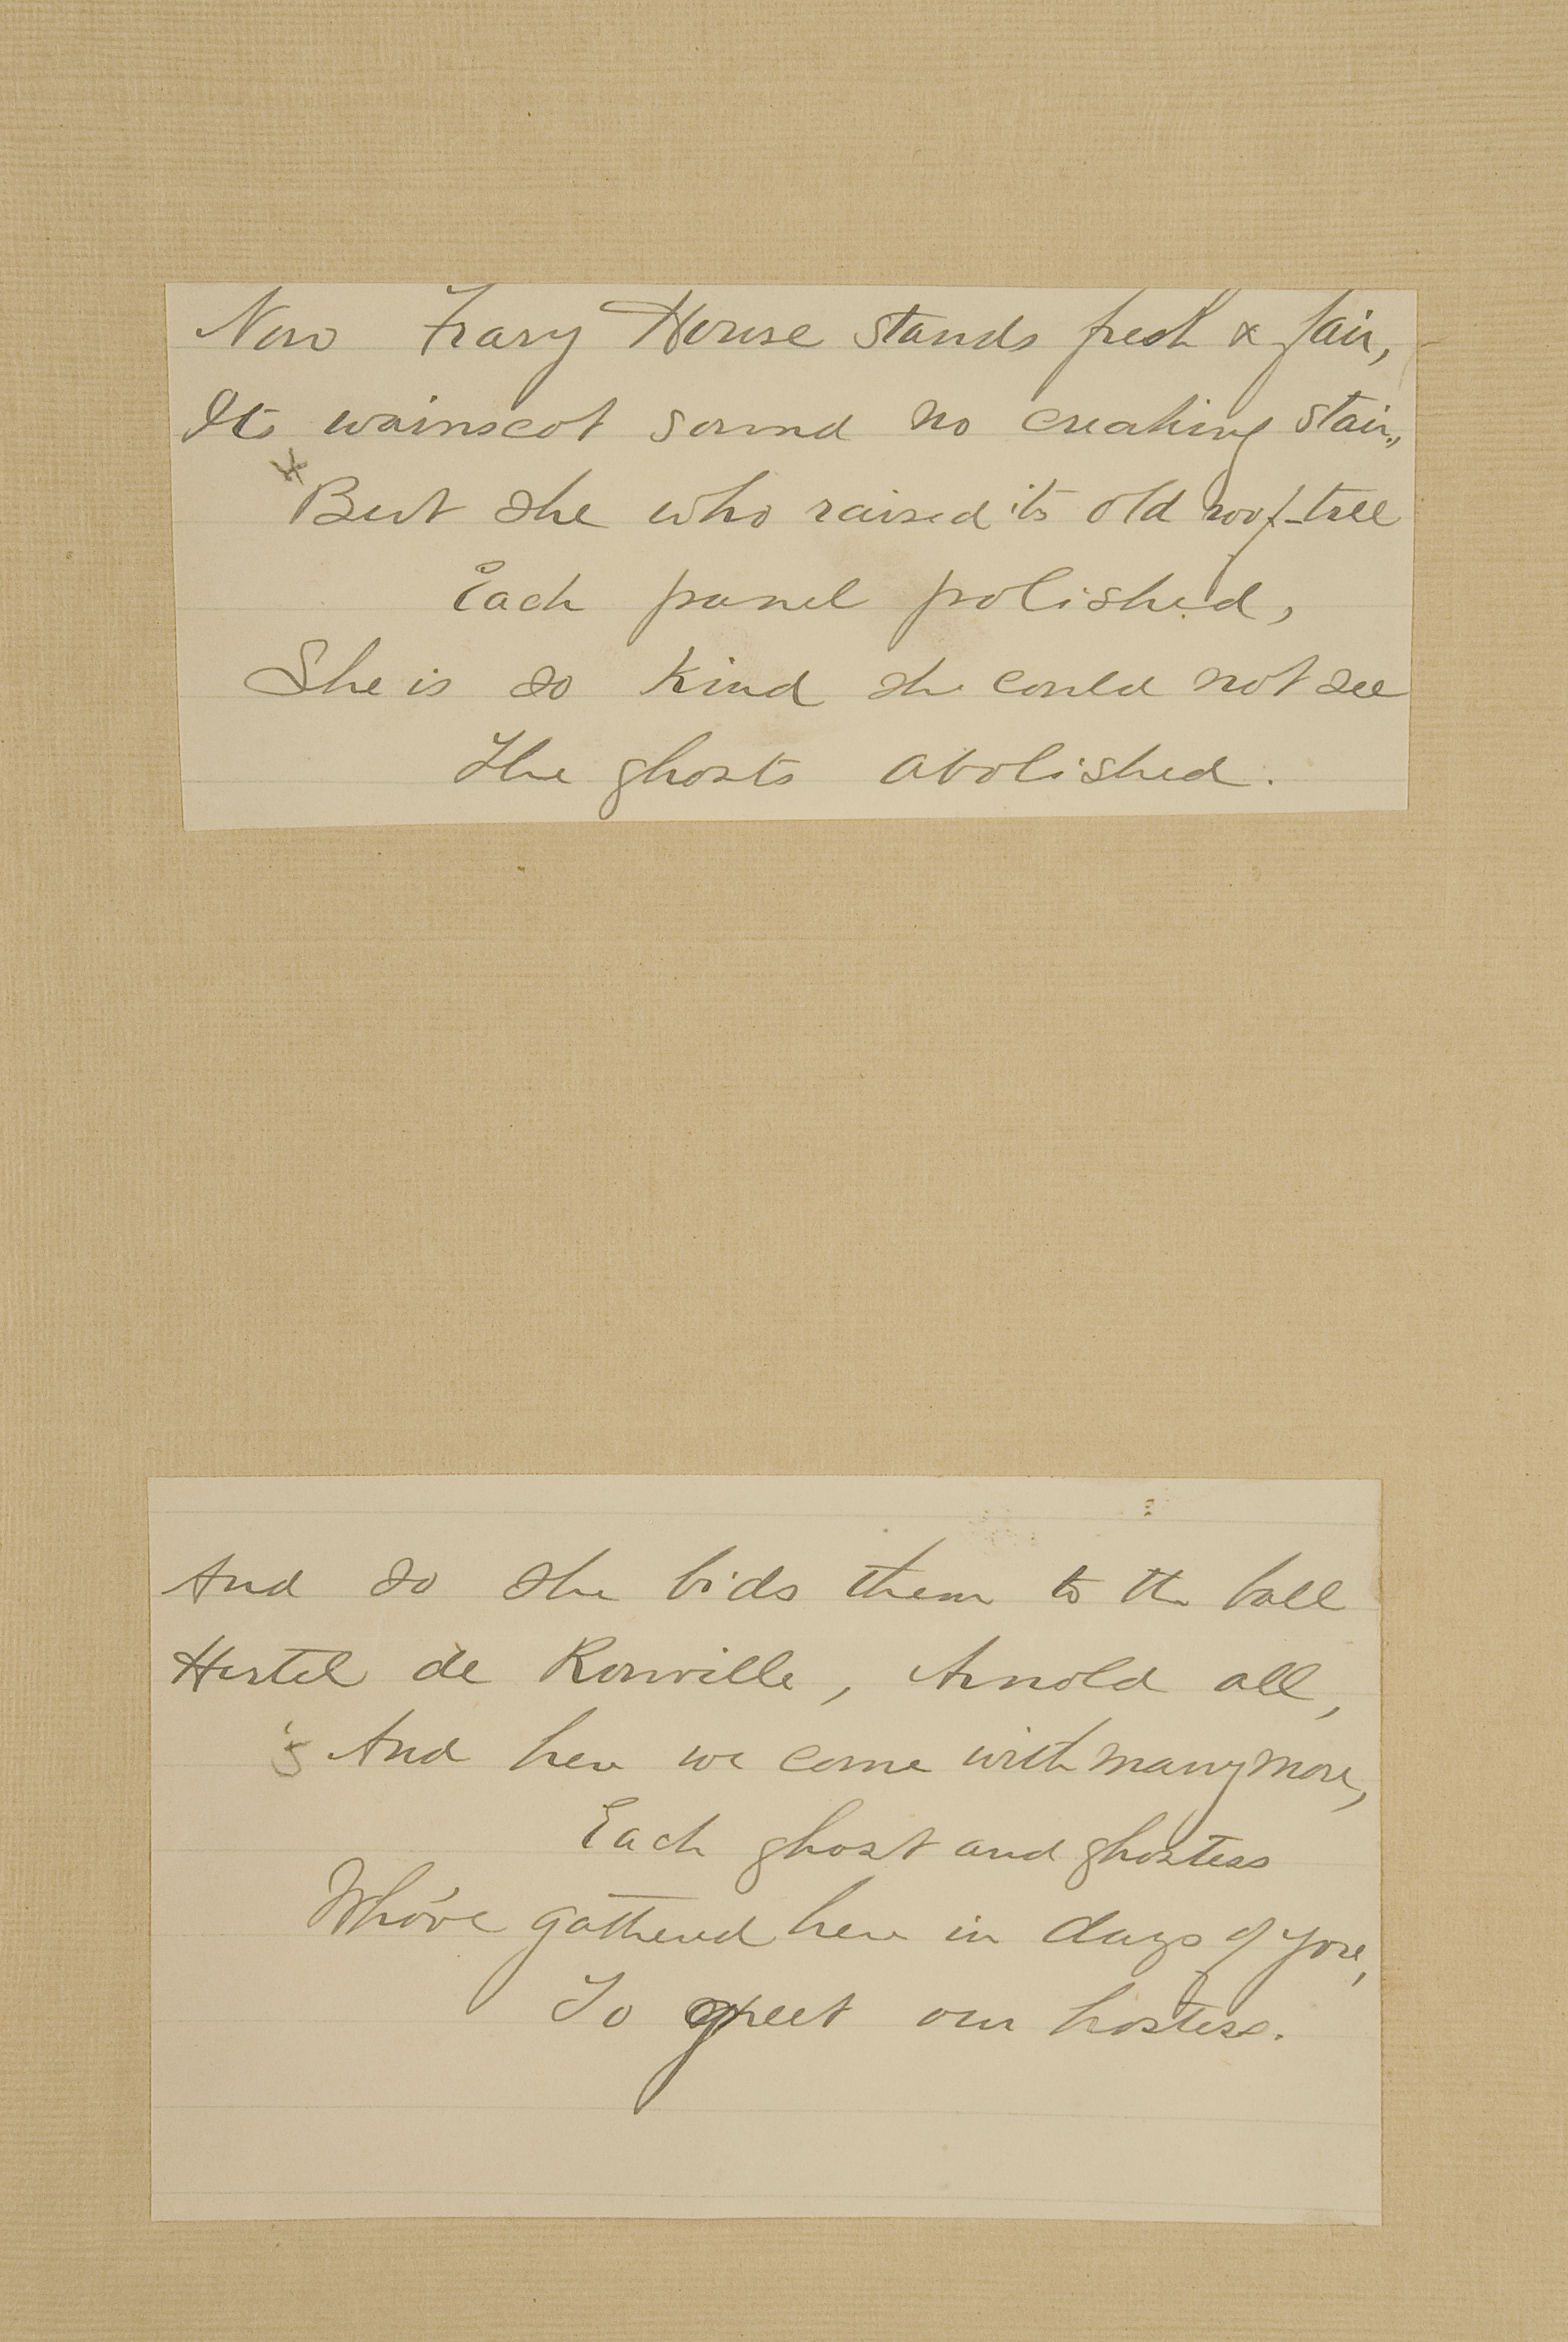 Now Frary House stands fresh & fair,
Its wainscot sound no creaking stair,
But she who raised its old roof-tree
Each panel polished,
She is so kind she could not see
The ghosts abolished.
And so she bids them to the ball
Hertel de Rouville, Arnold all,
5 And here we come with many more,
Each ghost and ghostess
Who've gathered here in days of yore,
To greet our hostess.